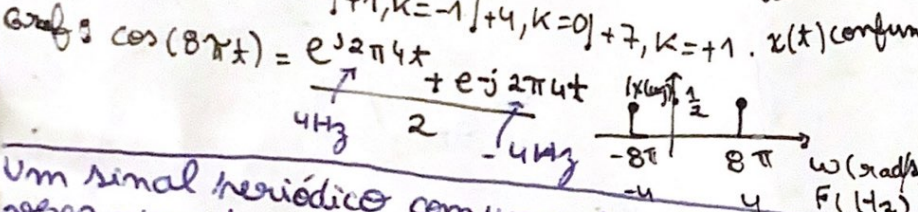 +1, K=-1] +4, K=0] +7, K=+1. x(t) confun
Graf: cos(8πt) = e^j2π4t + e^-j2π4t
2
4Hz
-4Hz
|X(ω)| 1/2
-8π 8π ω(rad/s
-4 4 F(Hz)
Um sinal periódico com